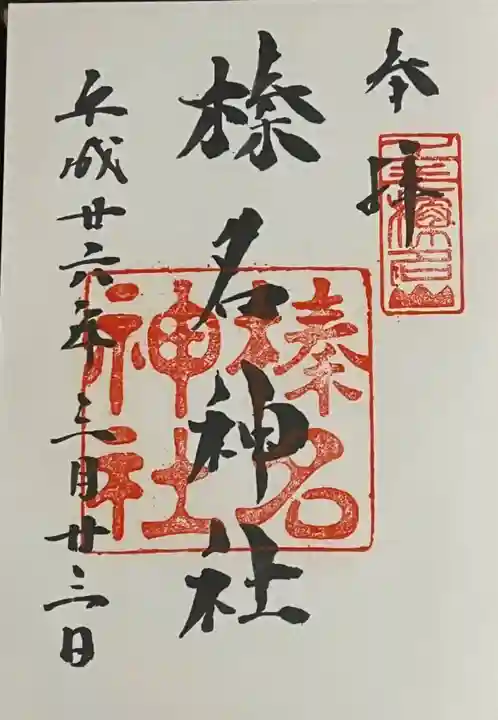 奉拝
榛名神社
榛名神社
平成廿六年三月廿三日